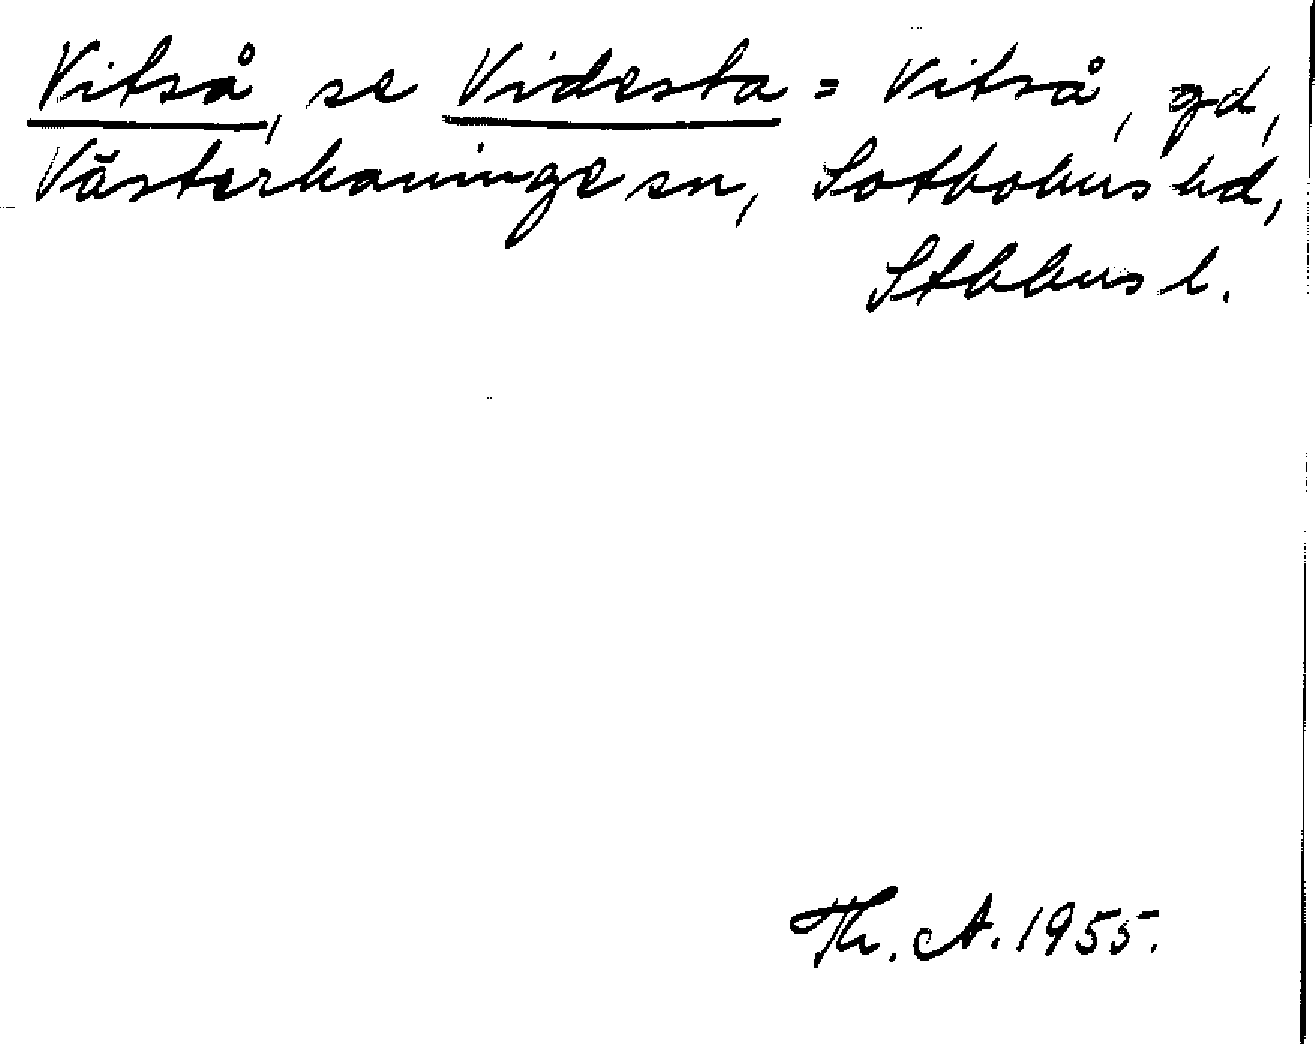 Vitså, se Videsta = Vitså, gd,
Västerhaninge sn, Sotholms hd,
Sthlms l.
Th. A. 1955.